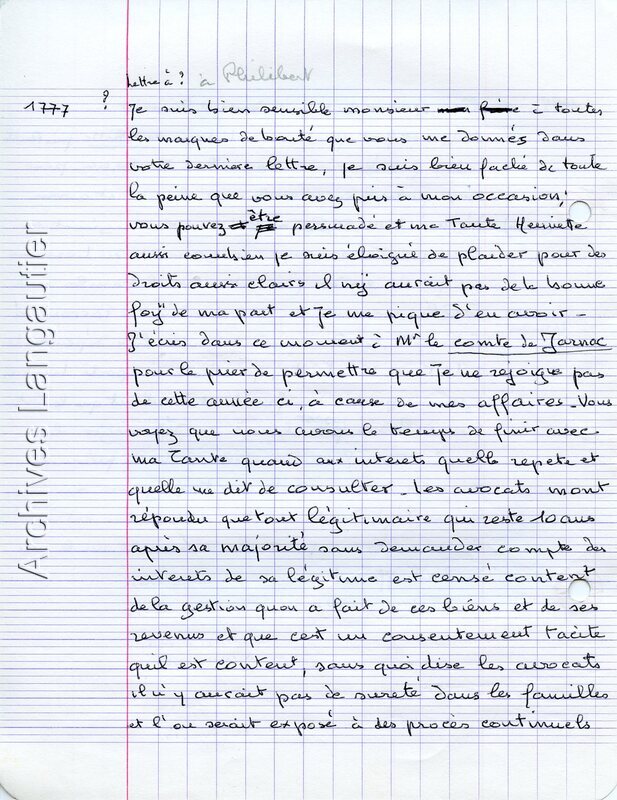 Lettre à ? à Philibert
1777 ? Je suis bien sensible monsieur mon frère à toutes
les marques de bonté que vous me donnéz dans
votre dernière lettre, je suis bien faché de toute
la peine que vous avez pris à mon occasion;
vous pouvez être persuadé et ma Tante Henriete
aussi combien je suis éloigné de plaider pour des
droits aussi clairs il n'ÿ aurait pas de la bonne
foÿ de ma part et Je me pique d'en avoir -
J'écris dans ce moment à Mr le comte de Jarnac
pour le prier de permettre que Je ne rejoigne pas
de cette année ci, à cause de mes affaires - Vous
voyez que nous avons le temps de finir avec
ma Tante quand aux interets quelle repete et
quelle me dit de consulter - Les avocats mont
répondu que tout légitimaire qui reste 10 ans
après sa majorité sans demander compte des
interets de sa légitime est censé content
de la gestion quon a fait de ces biéns et de ses
revenus et que cest un consentement tacite
quil est content, sans quoi dise les avocats
il n'y aurait pas de sureté dans les familles
et l'on serait exposé à des procès continuels
Archives Langautier